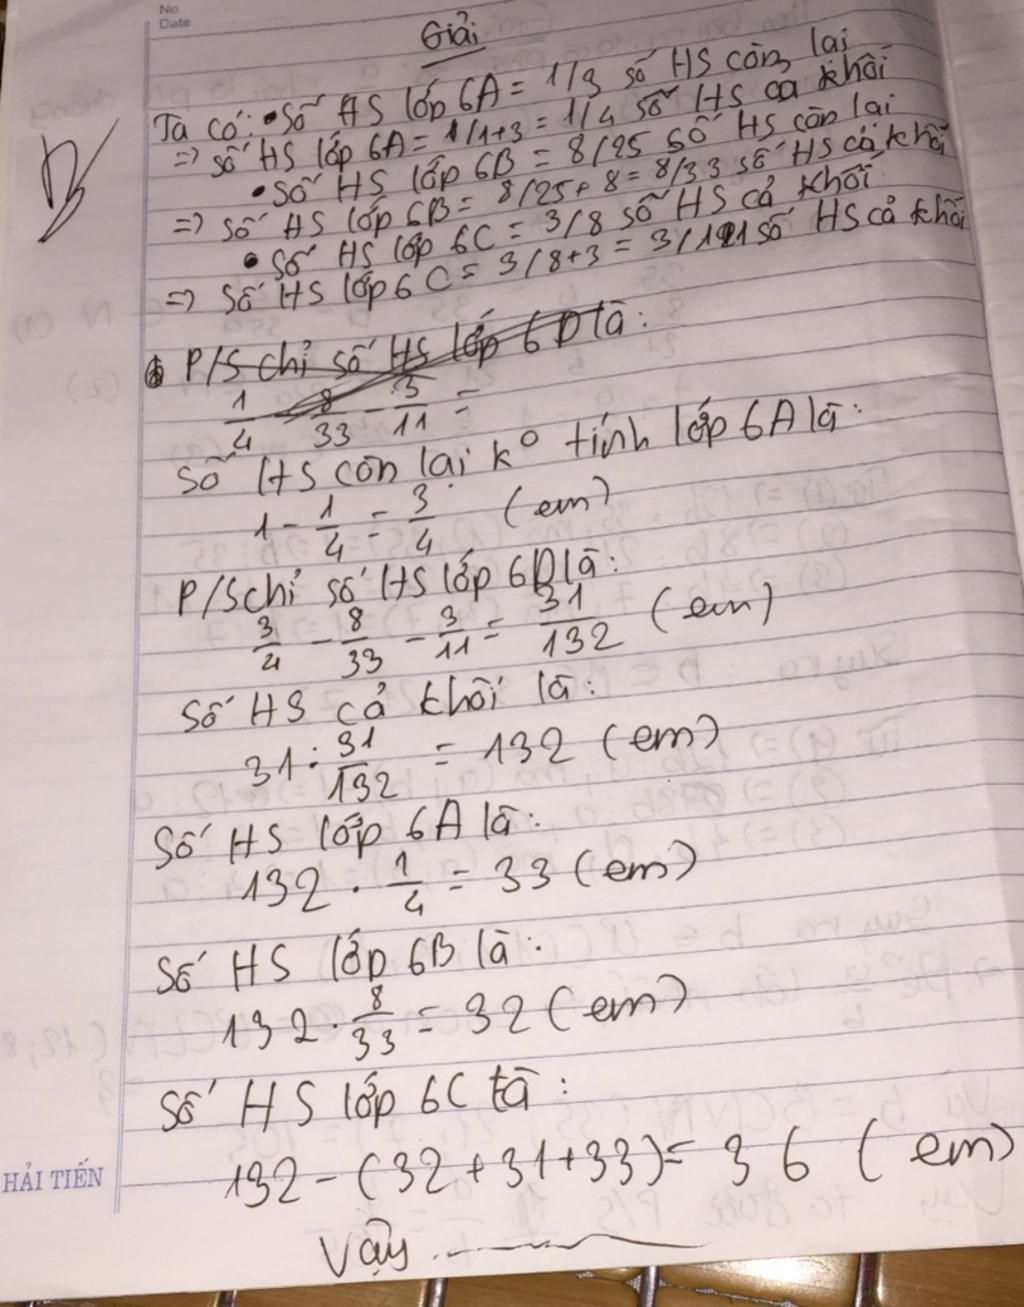 No.
Date
Giải
Ta có: • Số HS lớp 6A = 1/3 số HS còn lại
=> Số HS lớp 6A = 1/1+3 = 1/4 số HS cả khối
• Số HS lớp 6B = 8/25 số HS còn lại
=> Số HS lớp 6B = 8/25+8 = 8/33 số HS cả khối
• Số HS lớp 6C = 3/8 số HS cả khối
=> Số HS lớp 6C = 3/8+3 = 3/11 số HS cả khối
P/S chỉ số HS lớp 6D là:
1/4 - 8/33 - 3/11 =
Số HS còn lại k° tính lớp 6A là:
1 - 1/4 = 3/4 (em)
P/S chỉ số HS lớp 6D là:
3/4 - 8/33 - 3/11 = 31/132 (em)
Số HS cả khối là:
31 : 31/132 = 132 (em)
Số HS lớp 6A là:
132 . 1/4 = 33 (em)
Số HS lớp 6B là:
132 . 8/33 = 32 (em)
Số HS lớp 6C là:
132 - (32 + 31 + 33) = 36 (em)
Vậy
HẢI TIẾN